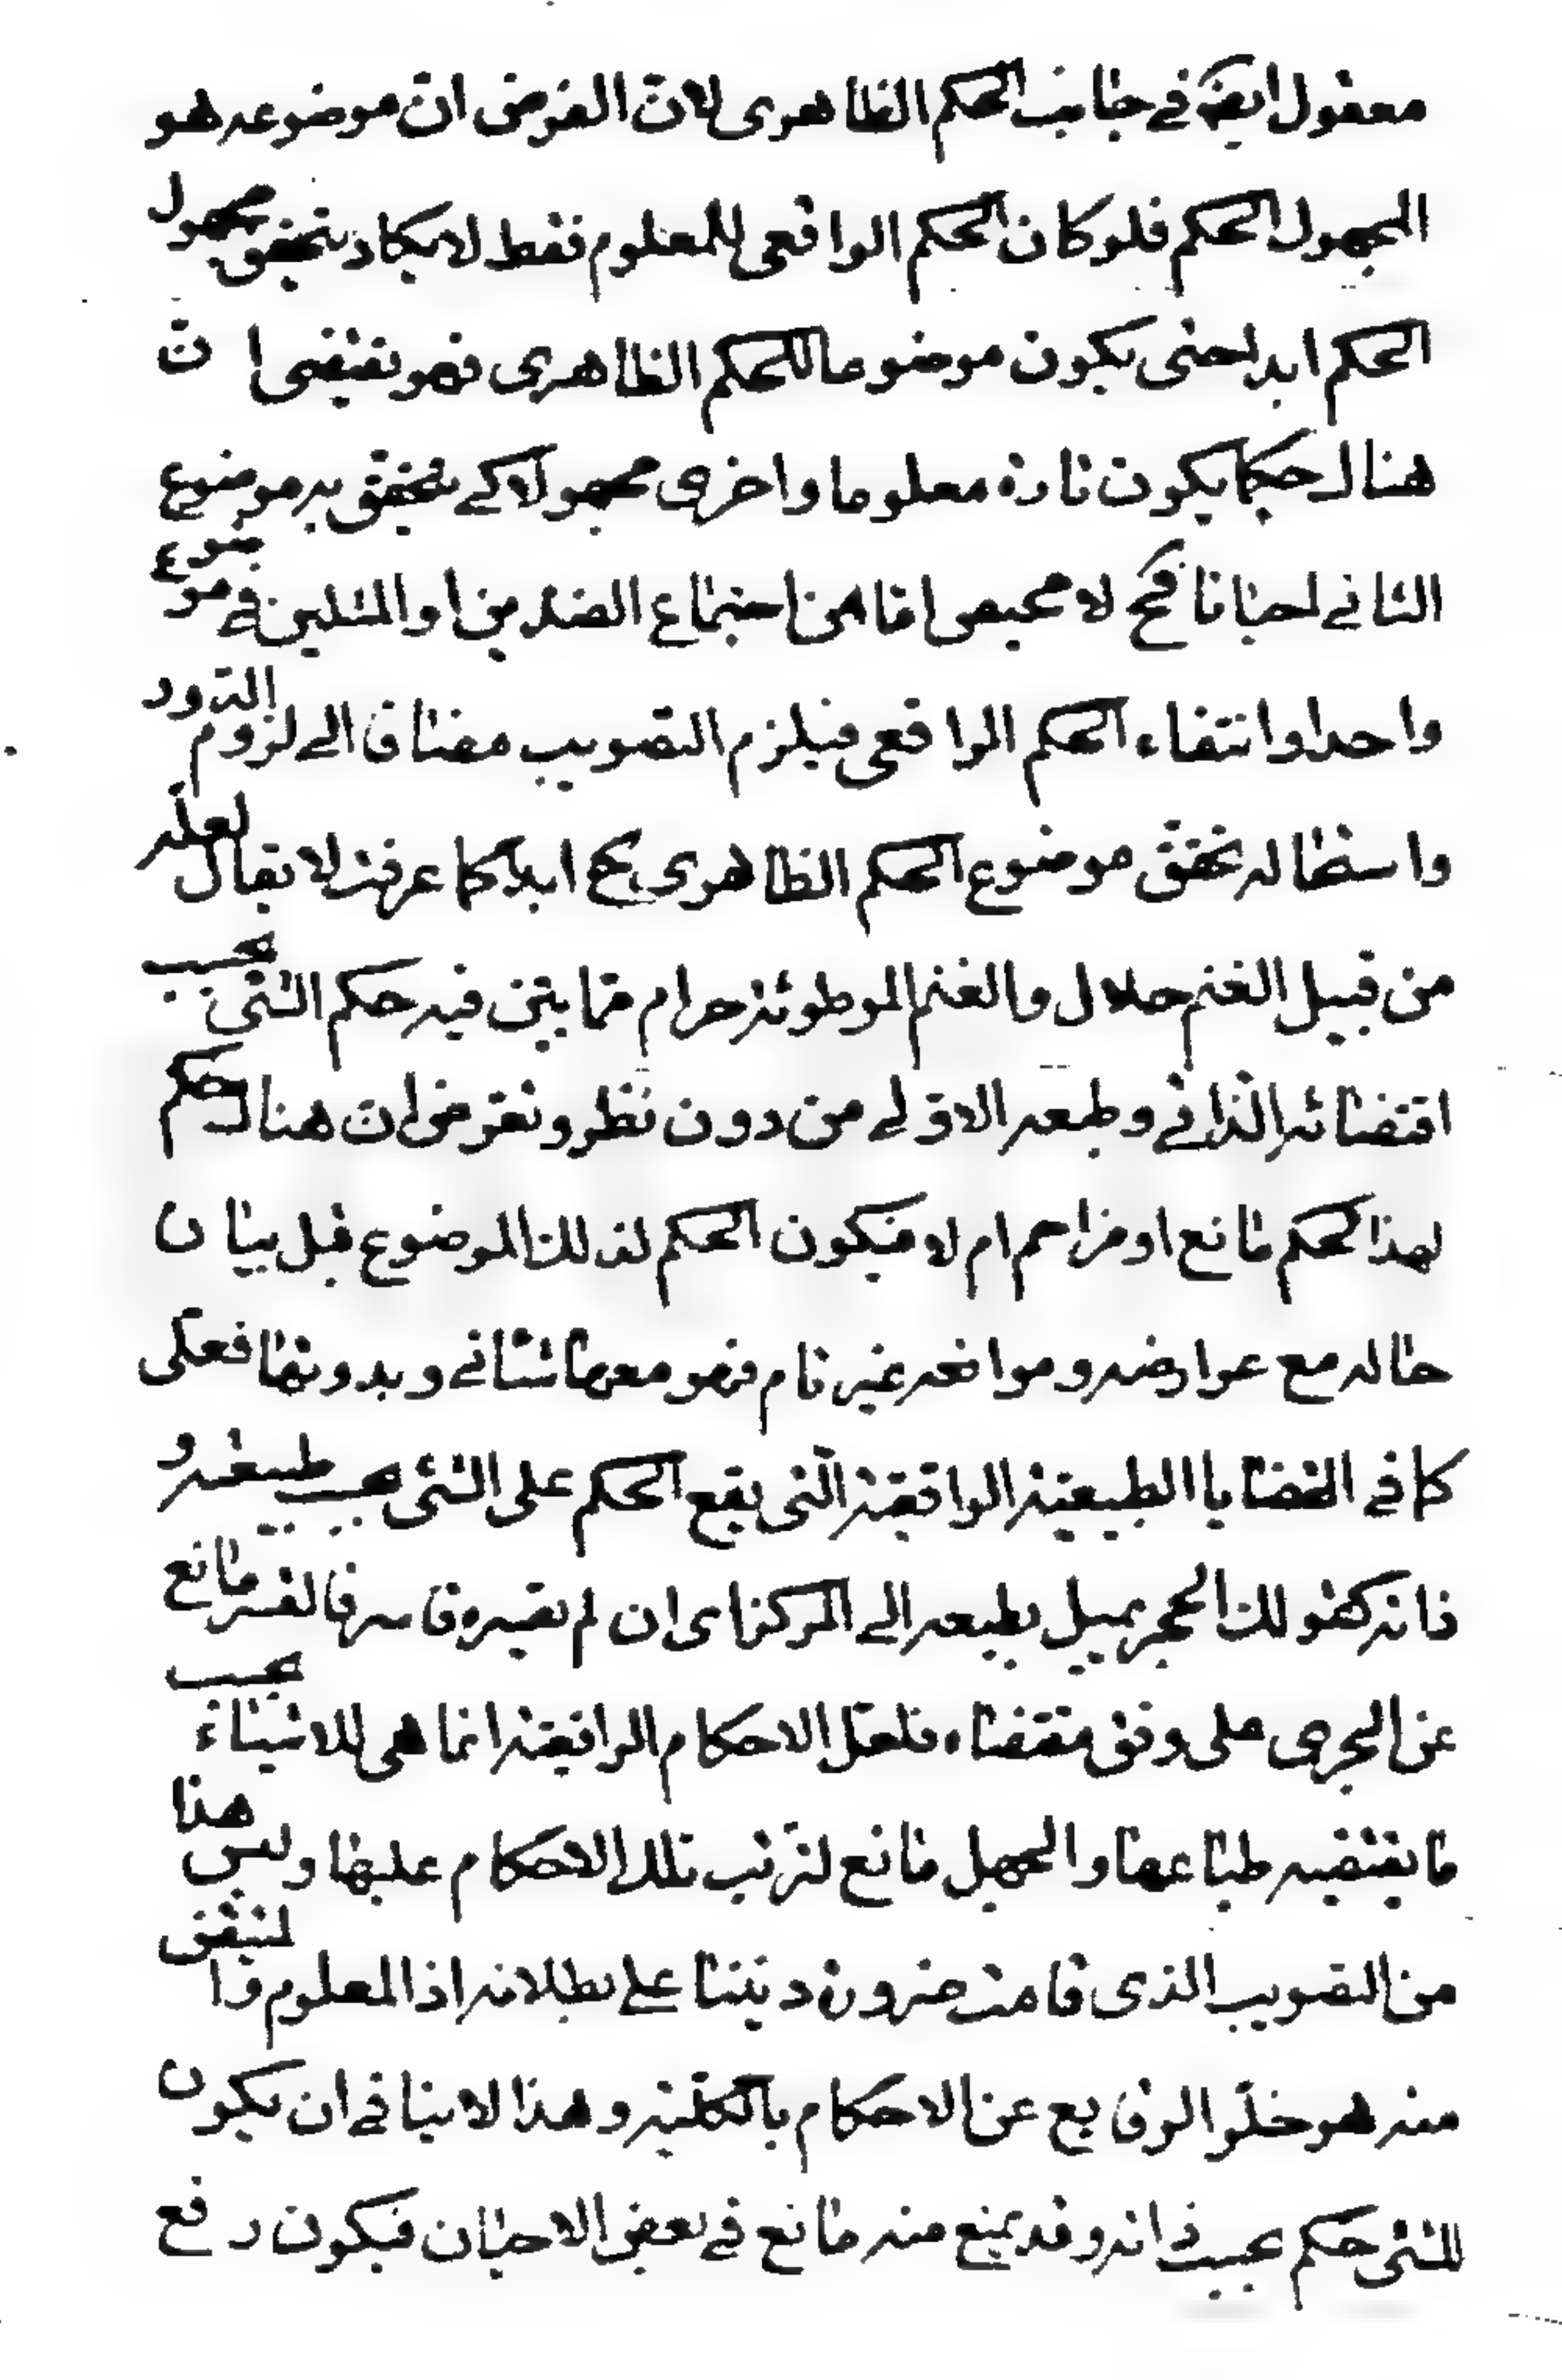 معقول ايضا في جانب الحكم الظاهرى لانّ الفرض انّ موضوعه هو
المجهول الحكم فلو كان الحكم الواقعى للمعلوم فقط لا يكاد يتحقق مجهول
الحكم ابدا حتى يكون موضوعا للحكم الظاهرى فهو يقتضى انّ
هناك حكما يكون تارة معلوما واخرى مجهولا كے يتحقق به موضوع
الثانے احيانا فح لا محيص امّا من اجتماع الضدين او المثلين في موضوع
واحد او انتفاء الحكم الواقعى فيلزم التصويب مضافا الى لزوم الدور
واستحالة تحقق موضوع الحكم الظاهرى ح ابدا كما عرفت لا يقال لعلّه
من قبيل الغنم حلال والغنم الموطوئة حرام ممّا يبيّن فيه حكم الشئ بحسب
اقتضائه الذاتي وطبعه الاوّلے من دون نظر وتعرض ان هناك حكم
لهذا الحكم مانع او مزاحم ام لا فيكون الحكم لذلك الموضوع قبل بيان
حاله مع عوارضه وموانعه غير تام فهو معها شانے وبدونها فعلى
كما في القضايا الطبيعيّة الواقعيّة الّتى يقع الحكم على الشئ بحسب طبيعته و
ذاته كقولك الحجر يميل بطبعه الى المركز اى ان لم يقسره قاسر فالقسر مانع
عن الجرى على وفق مقتضاه فلعلّ الاحكام الواقعيّة انما هى للاشياء بحسب
ما يقتضيه طباعها والجهل مانع لترتّب تلك الاحكام عليها وليس هذا
من التصويب الذى قامت ضرورة ديننا على بطلانه اذ المعلوم والمتيقن
منه هو خلّو الوقايع عن الاحكام بالكلّية وهذا لا ينافي ان يكون
للشئ حكم بحسب ذاته وقد يمنع منه مانع في بعض الاحيان فيكون رفع